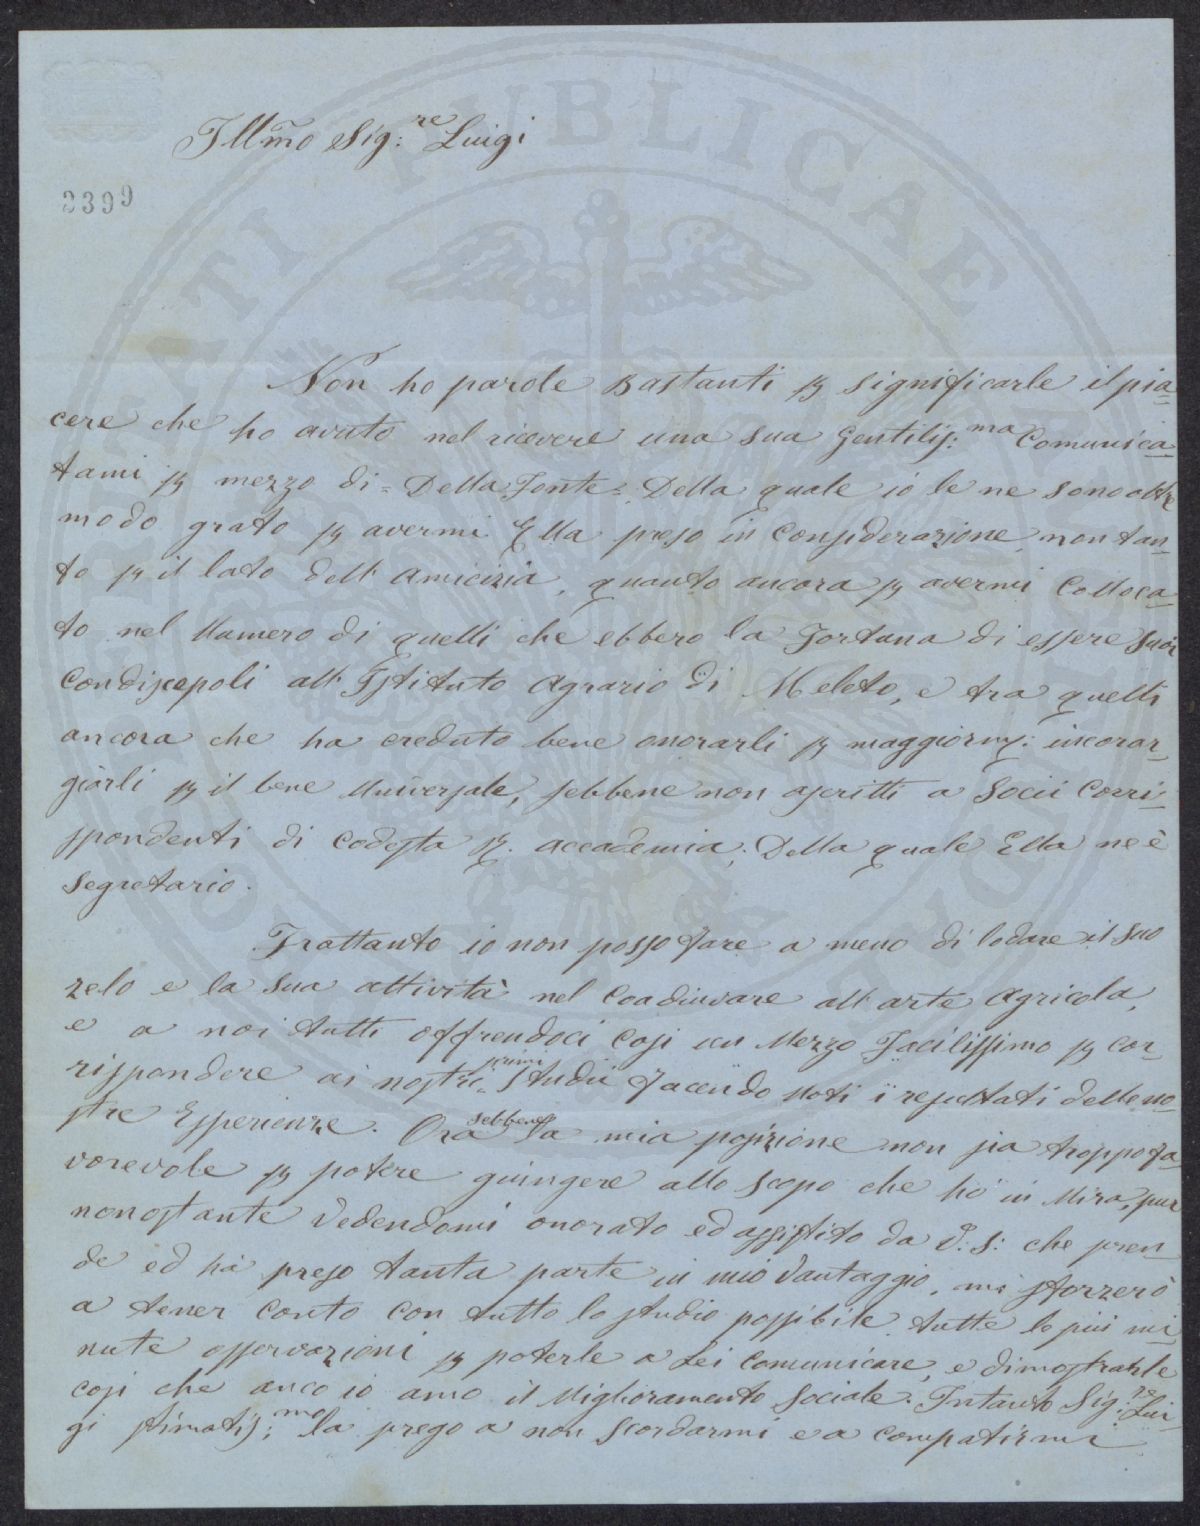 Illmo Sig:re Luigi
2399
Non ho parole Bastanti p significarle il pia-
cere che ho avuto nel ricevere una sua Gentilis:ma Comunica-
tami p mezzo di = Della Fonte = Della quale io le ne sono oltre
modo grato p avermi Ella preso in Considerazione non tan-
to p il lato dell'amicizia, quanto ancora p avermi Colloca-
to nel Numero di quelli che ebbero la Fortuna di essere Suoi
Condiscepoli all'Istituto Agrario di Meleto, e tra quelli
ancora che ha creduto bene onorarli p maggiorm: incorag-
giarli p il bene Universale, sebbene non ascritti a Socii Corri-
spondenti di codesta accademia; Della quale Ella ne è
Segretario.
Frattanto io non posso fare a meno di lodare il suo
zelo e la sua attività nel Coadiuvare all'arte Agricola,
e a noi tutti offrendoci Cosi un Mezzo Facilissimo p cor-
rispondere ai nostri primi Studii facendo Noti i resultati delle no-
stre Esperienze. Ora sebbene la mia posizione non sia troppo fa-
vorevole p potere giungere allo scopo che ho in Mira, pur
nonostante Vedendomi onorato ed assistito da V:S: che pren-
de ed ha preso tanta parte in mio Vantaggio, mi sforzerò
a tener Conto Con tutto lo studio possibile tutte le piu mi
nute osservazioni p poterle a Lei Comunicare, e dimostrarle
cosi che anco io amo il Miglioramento Sociale. Intanto Sig:re Lui-
gi stimatis:mo la prego a non scordarmi e a compatirmi
PUBLICAE